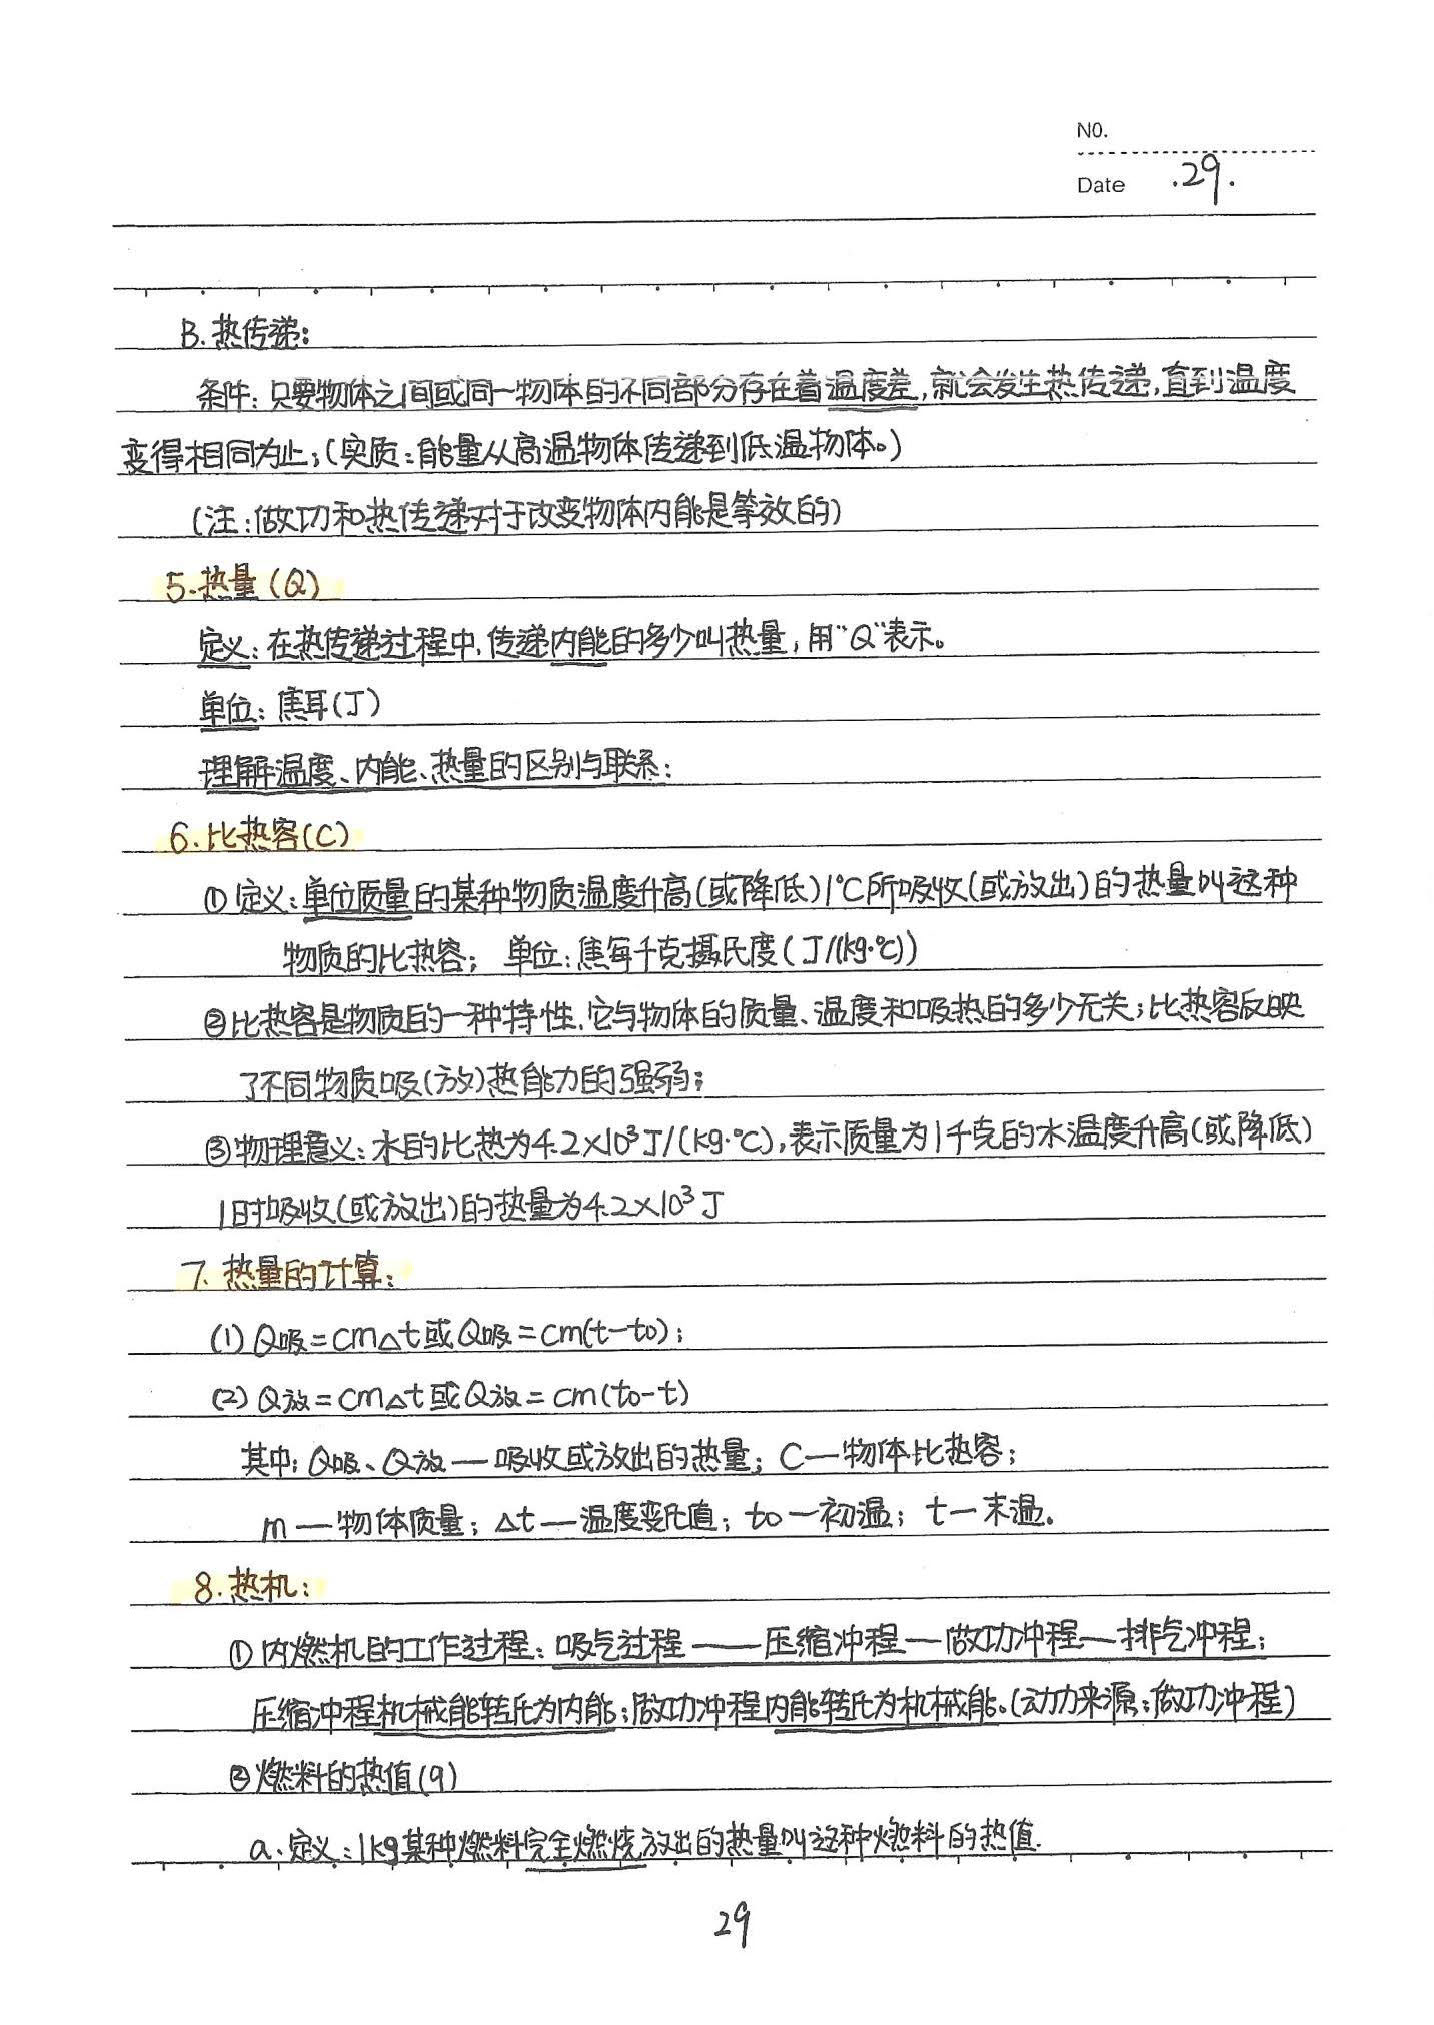 NO.
Date .29.
B.热传递:
条件:只要物体之间或同一物体的不同部分存在着温度差,就会发生热传递,直到温度
变得相同为止;(实质:能量从高温物体传递到低温物体。)
(注:做功和热传递对于改变物体内能是等效的)
5.热量(Q)
定义:在热传递过程中,传递内能的多少叫热量,用"Q"表示。
单位:焦耳(J)
理解温度、内能、热量的区别与联系:
6.比热容(C)
①定义:单位质量的某种物质温度升高(或降低)1℃所吸收(或放出)的热量叫这种
物质的比热容; 单位:焦每千克摄氏度(J/(kg·℃))
②比热容是物质的一种特性,它与物体的质量、温度和吸热的多少无关;比热容反映
了不同物质吸(放)热能力的强弱;
③物理意义:水的比热为4.2×10³J/(kg·℃),表示质量为1千克的水温度升高(或降低)
1时吸收(或放出)的热量为4.2×10³J
7.热量的计算:
(1)Q吸=cm△t或Q吸=cm(t-t0);
(2)Q放=cm△t或Q放=cm(t0-t)
其中:Q吸、Q放—吸收或放出的热量;C—物体比热容;
m—物体质量;△t—温度变化值;t0—初温;t—末温.
8.热机:
①内燃机的工作过程:吸气过程——压缩冲程—做功冲程—排气冲程;
压缩冲程机械能转化为内能;做功冲程内能转化为机械能。(动力来源:做功冲程)
②燃料的热值(q)
a.定义:1kg某种燃料完全燃烧放出的热量叫这种燃料的热值.
29